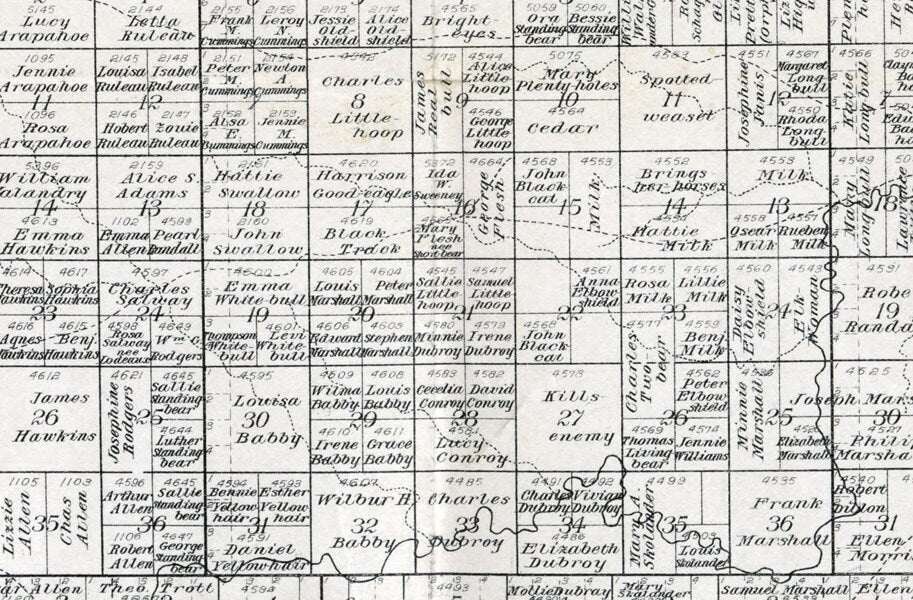 5145 2144 2155 2156 2173 2174 4565 5059 5060
Lucy Letta Frank Leroy Jessie Alice Bright- Ora Bessie
Arapahoe Ruleau M. N. Old- Old- eyes Standing Standing
Cummings Cummings shield shield bear bear
1095 2145 2148 2151 2154 5172 4544 5075 4563 4551 4567 4566
Jennie Louisa Isabel Peter Newton Charles James Alice Mary Spotted Josephine Janis Margaret Katie
Arapahoe Ruleau Ruleau M. A. Little- Real Little- Plenty-holes weasel Long- Long bull
Cummings Cummings hoop bull hoop bull
11 12 7 8 9 10 11 12
1096 2146 2147 2152 2153 4546 4564 4550
Rosa Hobert Zouie Alsa Jennie George Cedar Rhoda
Arapahoe Ruleau Ruleau E. M. Little- Long-
Cummings Cummings hoop bull
5396 2159 2161 4620 5372 4664 4568 4553 4552 4553 4549
William Alice S. Hattie Harrison Ida George John Milk Brings Milk Mary
Valandry Adams Swallow Good-eagle W. Flesh Black her-horses Long bull
Sweeney cat
14 13 18 17 16 15 14 13 18
4613 1102 4599 2160 4619 4554 4558 4557
Emma Emma Pearl John Black Mary Hattie Oscar Rueben
Hawkins Allen Randall Swallow Track Flesh Milk Milk Milk
nee
Shortbear
4614 4617 4597 4600 4605 4604 4545 4547 4561 4555 4556 4560 4543 4531
Theresa Sophia Charles Emma Louis Peter Sallie Samuel Anna Rosa Lillie Daisy Elk Robe
Hawkins Hawkins Salway White-bull Marshall Marshall Little- Little- Elbow Milk Milk Elbow Woman Randa
hoop hoop shield shield
23 24 19 20 21 22 23 24 19
4616 4615 4598 4649 4601 4606 4603 4580 4579 4568 4577 4559
Agnes Benj. Rosa Wm. C. Thompson Levi Edward Stephen Minnie Irene John Charles Benj.
Hawkins Hawkins Salway Rodgers White- White- Marshall Marshall Dubroy Dubroy Black Two- Milk
nee bull bull cat bear
4612 4621 4645 4595 4609 4608 4583 4582 4573 4562 4536
James Josephine Sallie Louisa Wilma Louis Cecelia David Kills Peter Minnie Joseph Mars
Hawkins Rodgers Standing Babby Babby Babby Conroy Conroy enemy Elbow Marshall
bear shield
26 25 30 29 28 27 26 25 30
4644 4610 4611 4581 4569 4574 4527
Luther Irene Grace Lucy Thomas Jennie Elizabeth Phili
Standing Babby Babby Conroy Living Williams Marshall Marsha
bear bear
1105 1103 4596 4646 4594 4593 4607 4485 4491 4492 4499 4535 4540
Lizzie Chas Arthur Sallie Bennie Esther Wilbur H. Charles Charles Vivian Mary A. Frank Robert
Allen Allen Allen Standing Yellow Yellow Babby Dubroy Dubroy Dubroy Skalander Marshall Dillon
bear hair hair
35 36 31 32 33 34 35 36 31
1106 4647 4591 4486 4503
Robert George Daniel Elizabeth Louis Ellen
Allen Standing Yellowhair Dubroy Skalander Morri
bear
ar Allen Theo. Trott 4592 4493 Mollie Dubray Mary Skalander Samuel Marshall Ellen